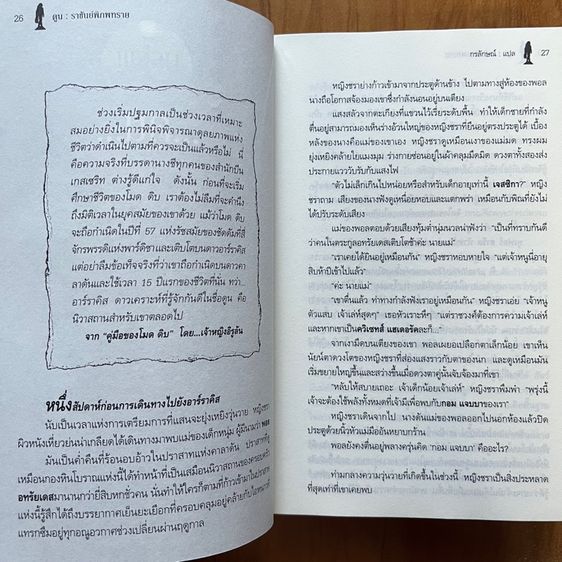 26
ดูน : ราชันย์พิภพทราย
ช่วงเริ่มปฐมกาลเป็นช่วงเวลาที่เหมาะ
สมอย่างยิ่งในการพินิจพิจารณาดุลยภาพแห่ง
ชีวิตว่าดำเนินไปตามที่ควรจะเป็นแล้วหรือไม่ นี่
คือความจริงที่บรรดานางชีทุกคนของสำนักบีน
เกสเซริท ต่างรู้ดีแก่ใจ ดังนั้น ก่อนที่จะเริ่ม
ศึกษาชีวิตของโมด ดิบ เราต้องไม่ลืมที่จะคำนึง
ถึงมิติเวลาในยุคสมัยของเขาด้วย แม้ว่าโมด ดิบ
จะถือกำเนิดในปีที่ 57 แห่งรัชสมัยของชัดดัมที่สี่
จักรพรรดิแห่งพาร์ดิชาและเติบโตบนดาวอาร์ราคิส
แต่อย่าลืมข้อเท็จจริงที่ว่าเขาถือกำเนิดบนดาวคา
ลาดันและใช้เวลา 15 ปีแรกของชีวิตที่นั่น ทว่า...
อาร์ราคิส ดาวเคราะห์ที่รู้จักกันดีในชื่อดูน คือ
นิวาสถานสำหรับเขาตลอดไป
จาก "คู่มือของโมด ดิบ" โดย...เจ้าหญิงอิรูลัน
หนึ่งสัปดาห์ก่อนการเดินทางไปยังอาร์ราคิส
นับเป็นเวลาแห่งการเตรียมการที่แสนจะยุ่งเหยิงวุ่นวาย หญิงชรา
ผิวหนังเหี่ยวย่นน่าเกลียดได้เดินทางมาพบแม่ของเด็กหนุ่ม ผู้มีนามว่า พอล
มันเป็นค่ำคืนที่ร้อนอบอ้าวในปราสาทแห่งคาลาดัน ปราสาทที่ดู
เหมือนกองหินโบราณแห่งนี้ได้ทำหน้าที่เป็นเสมือนนิวาสถานของครอบครัว
อทรัยเดสมานานกว่ายี่สิบหกชั่วคน นั่นทำให้ใครก็ตามที่ก้าวเข้ามาในปราสาท
แห่งนี้รู้สึกได้ถึงบรรยากาศเย็นยะเยือกที่ครอบคลุมอยู่คล้ายกับไอหนาว
แทรกซึมอยู่ทุกอณูอวกาศช่วงเปลี่ยนผ่านฤดูกาล
กรลักษณ์ : แปล
27
หญิงชราย่างก้าวเข้ามาจากประตูด้านข้าง ไปตามทางสู่ห้องของพอล
นางถือโอกาสจ้องมองเขาซึ่งกำลังนอนอยู่บนเตียง
แสงสลัวจากตะเกียงที่แขวนไว้เรี่ยระดับพื้น ทำให้เด็กชายที่กำลัง
ตื่นอยู่สามารถมองเห็นร่างอ้วนใหญ่ของหญิงชราที่ยืนอยู่ตรงประตูได้ เบื้อง
หลังของนางคือแม่ของเขาเอง หญิงชราดูเหมือนเงาของแม่มด ทรงผม
ยุ่งเหยิงคล้ายใยแมงมุม ร่างกายซ่อนอยู่ในผ้าคลุมมืดมิด ดวงตาทั้งสองส่ง
ประกายแวววับรับกับแสงไฟ
"ตัวไม่เล็กเกินไปหน่อยหรือสำหรับเด็กอายุเท่านี้ เจสซิกา?" หญิง
ชราถาม เสียงของนางฟังดูเหนื่อยหอบและแตกพร่า เหมือนกับพิณที่ยังไม่
ได้ปรับระดับเสียง
แม่ของพอลตอบด้วยเสียงทุ้มต่ำนุ่มนวลน่าฟัง "เป็นที่ทราบกันดี
ว่าคนในตระกูลอทรัยเดสเติบโตช้าค่ะ นายแม่"
"เราเคยได้ยินอยู่เหมือนกัน" หญิงชราหอบหายใจ "แต่เจ้าหนูนี่อายุ
สิบห้าปีเข้าไปแล้ว"
"ค่ะ นายแม่"
"เขาตื่นแล้ว ทำท่ากำลังฟังเราอยู่เหมือนกัน" หญิงชราเอ่ย "เจ้าหนู
แสบ เจ้าเล่ห์สุดๆ" เธอหัวเราะหึๆ "แต่ราชวงศ์ต้องการความเจ้าเล่ห์
และหากเขาเป็นควิเซทส์ แฮเดอรัคละก็..."
จากเงามืดบนเตียงของเขา พอลเผยอเปลือกตาเล็กน้อย เขาเห็น
นัยน์ตาดวงโตของหญิงชราที่ส่องแสงวาวกับตาของนก และดูเหมือนมัน
เริ่มขยายใหญ่ขึ้นและสว่างขึ้นเมื่อดวงตาคู่นั้นจับจ้องมาที่เขา
"หลับให้สบายเถอะ เจ้าเด็กน้อยเจ้าเล่ห์" หญิงชราพึมพำ "พรุ่งนี้
เจ้าจะต้องใช้พลังทั้งหมดที่มีเพื่อพบกับกอม แจบบาของเรา"
หญิงชราเดินจากไป นางดันแม่ของพอลออกไปนอกห้องแล้วปิด
ประตูด้วยนิ้วหัวแม่มืออันหยาบกร้าน
พอลยังคงตื่นอยู่พลางครุ่นคิด 'กอม แจบบา' คืออะไร?
ท่ามกลางความวุ่นวายที่เกิดขึ้นในช่วงนี้ หญิงชราเป็นสิ่งประหลาด
ที่สุดเท่าที่เขาเคยพบ